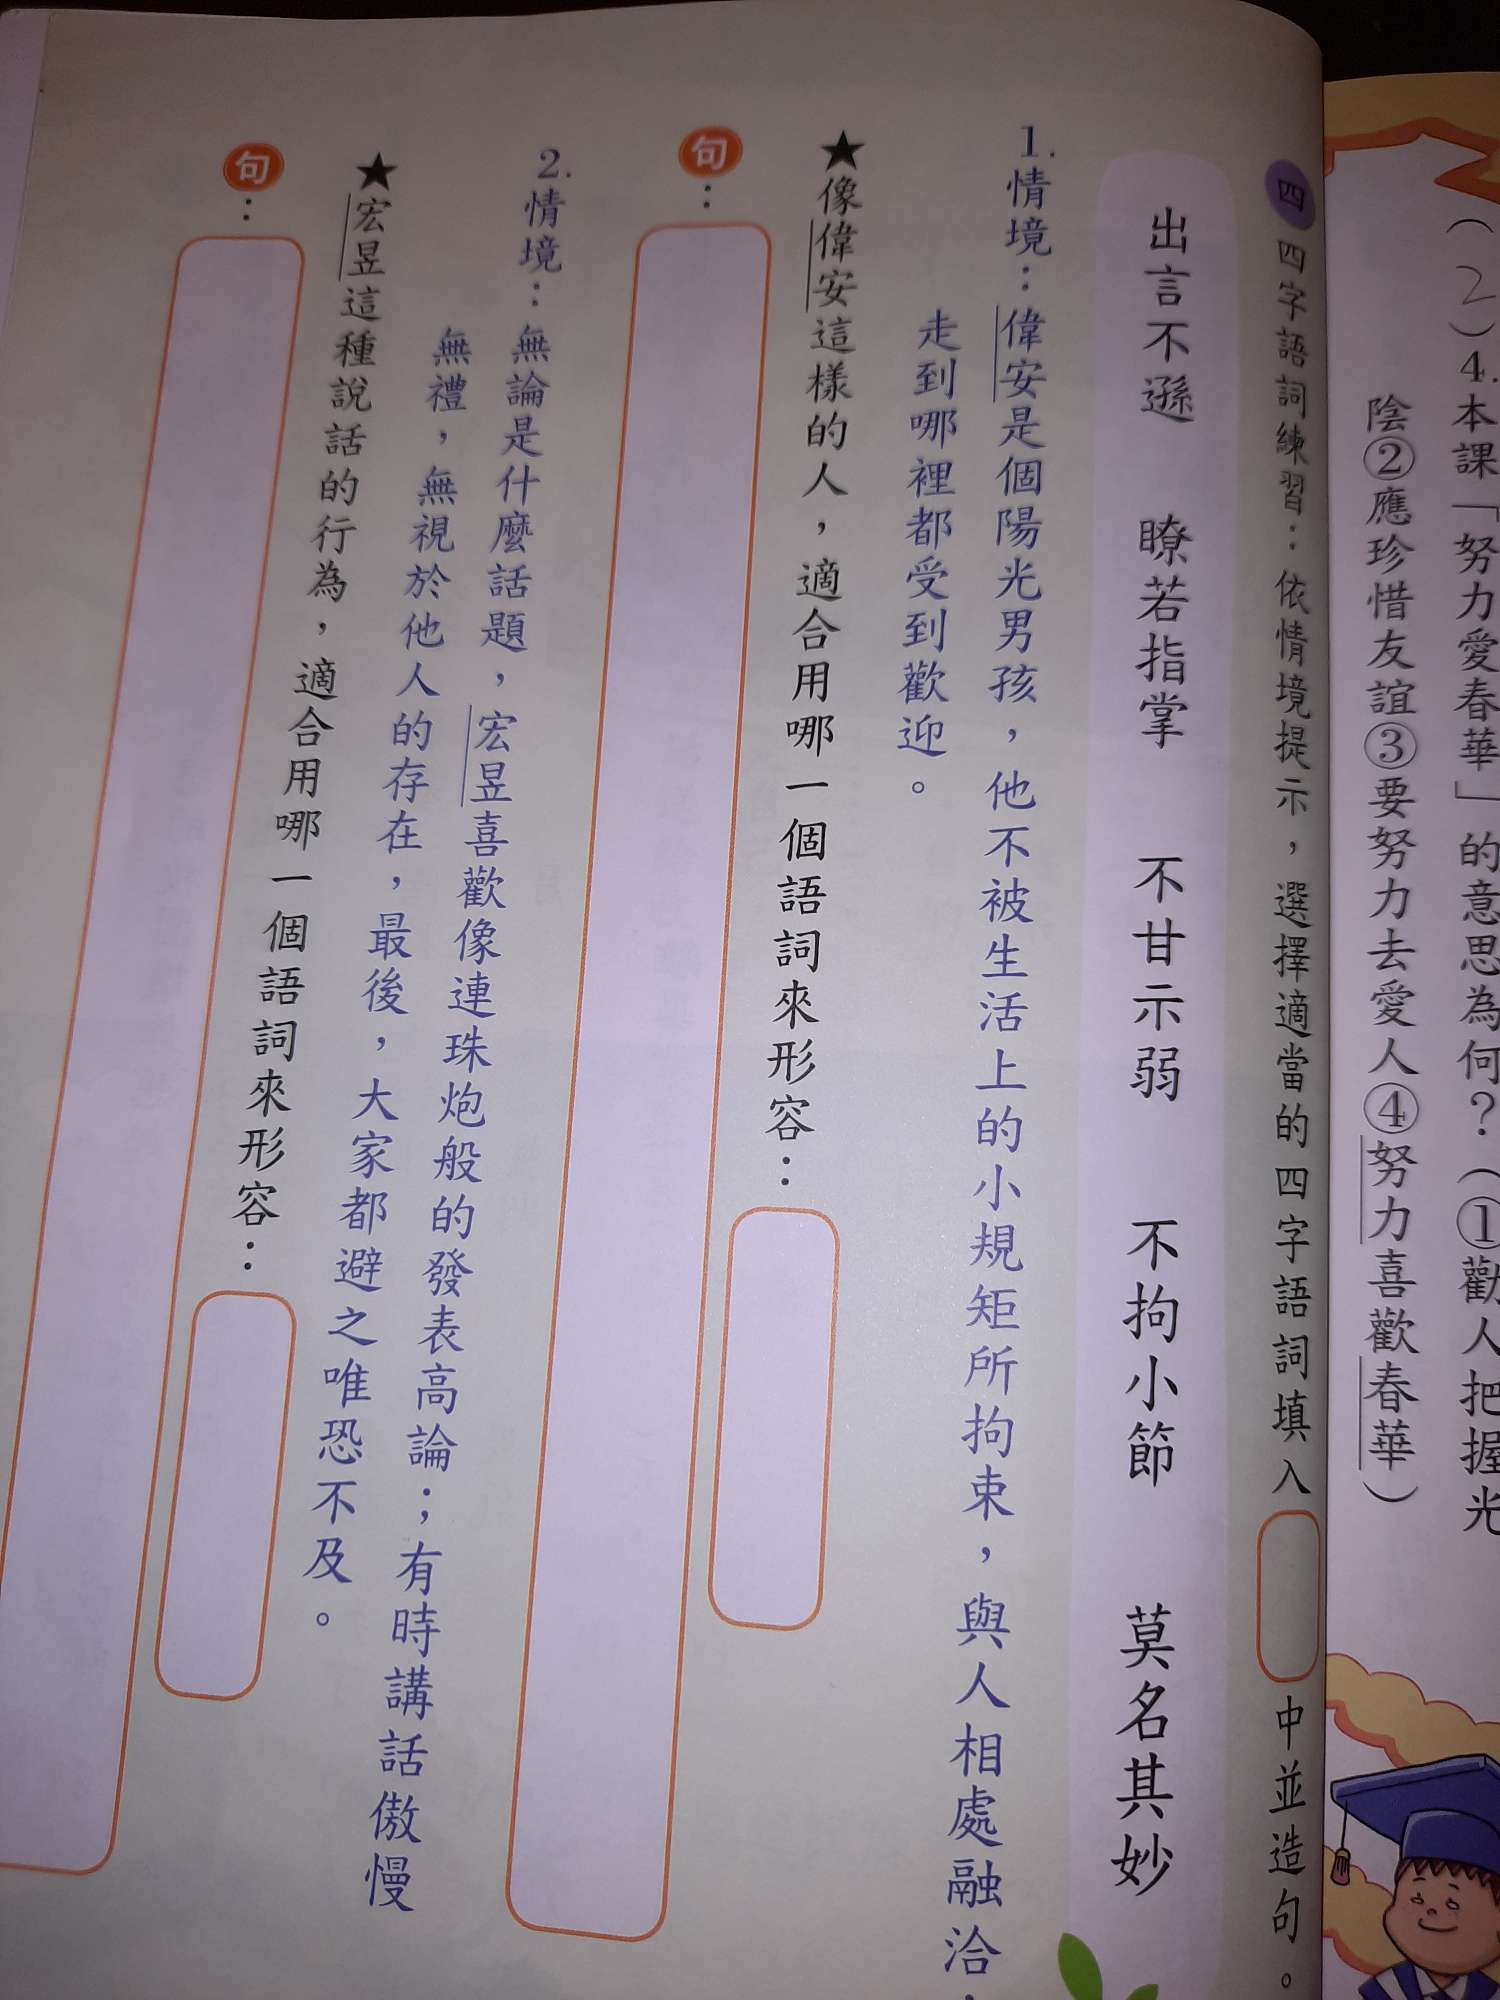 （2）4.本課「努力愛春華」的意思為何？（①勸人把握光
陰②應珍惜友誼③要努力去愛人④努力喜歡春華）
四 四字語詞練習：依情境提示，選擇適當的四字語詞填入 中並造句。
出言不遜 瞭若指掌 不甘示弱 不拘小節 莫名其妙
1.情境：偉安是個陽光男孩，他不被生活上的小規矩所拘束，與人相處融洽，
走到哪裡都受到歡迎。
★像偉安這樣的人，適合用哪一個語詞來形容：
句：
2.情境：無論是什麼話題，宏昱喜歡像連珠炮般的發表高論；有時講話傲慢
無禮，無視於他人的存在，最後，大家都避之唯恐不及。
★宏昱這種說話的行為，適合用哪一個語詞來形容：
句：